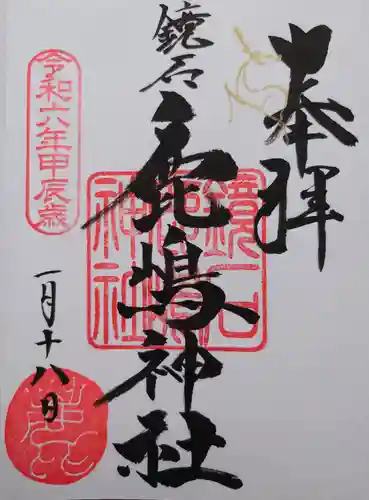 奉拝
鏡石
鹿嶋神社
鏡石
鹿嶋
神社
令和六年甲辰歳
一月十八日